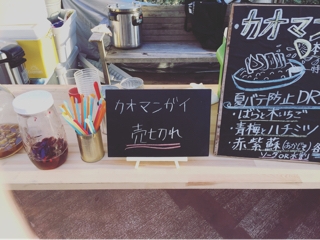 カオマンガイ
売切れ
カオマン
夏バテ防止 DR
・ばらと木いちご
・青梅とハチミツ
・赤紫蘇(あかじそ)
ソーダ or 水割り